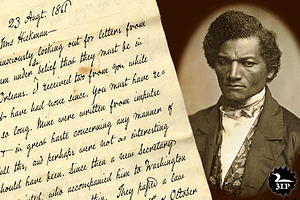 23 Augt. 1861
Hickman—
looking out for letters from
under belief that they must be in
Orleans. I received two from you while
have had none since. You must have re-
so long. Mine were written from impulse
in great haste concerning any manner of
all this, and perhaps were not as interesting
should have been. Since then a new Secretary
who accompanied him to Washington
this. They passed a law
October
3LP